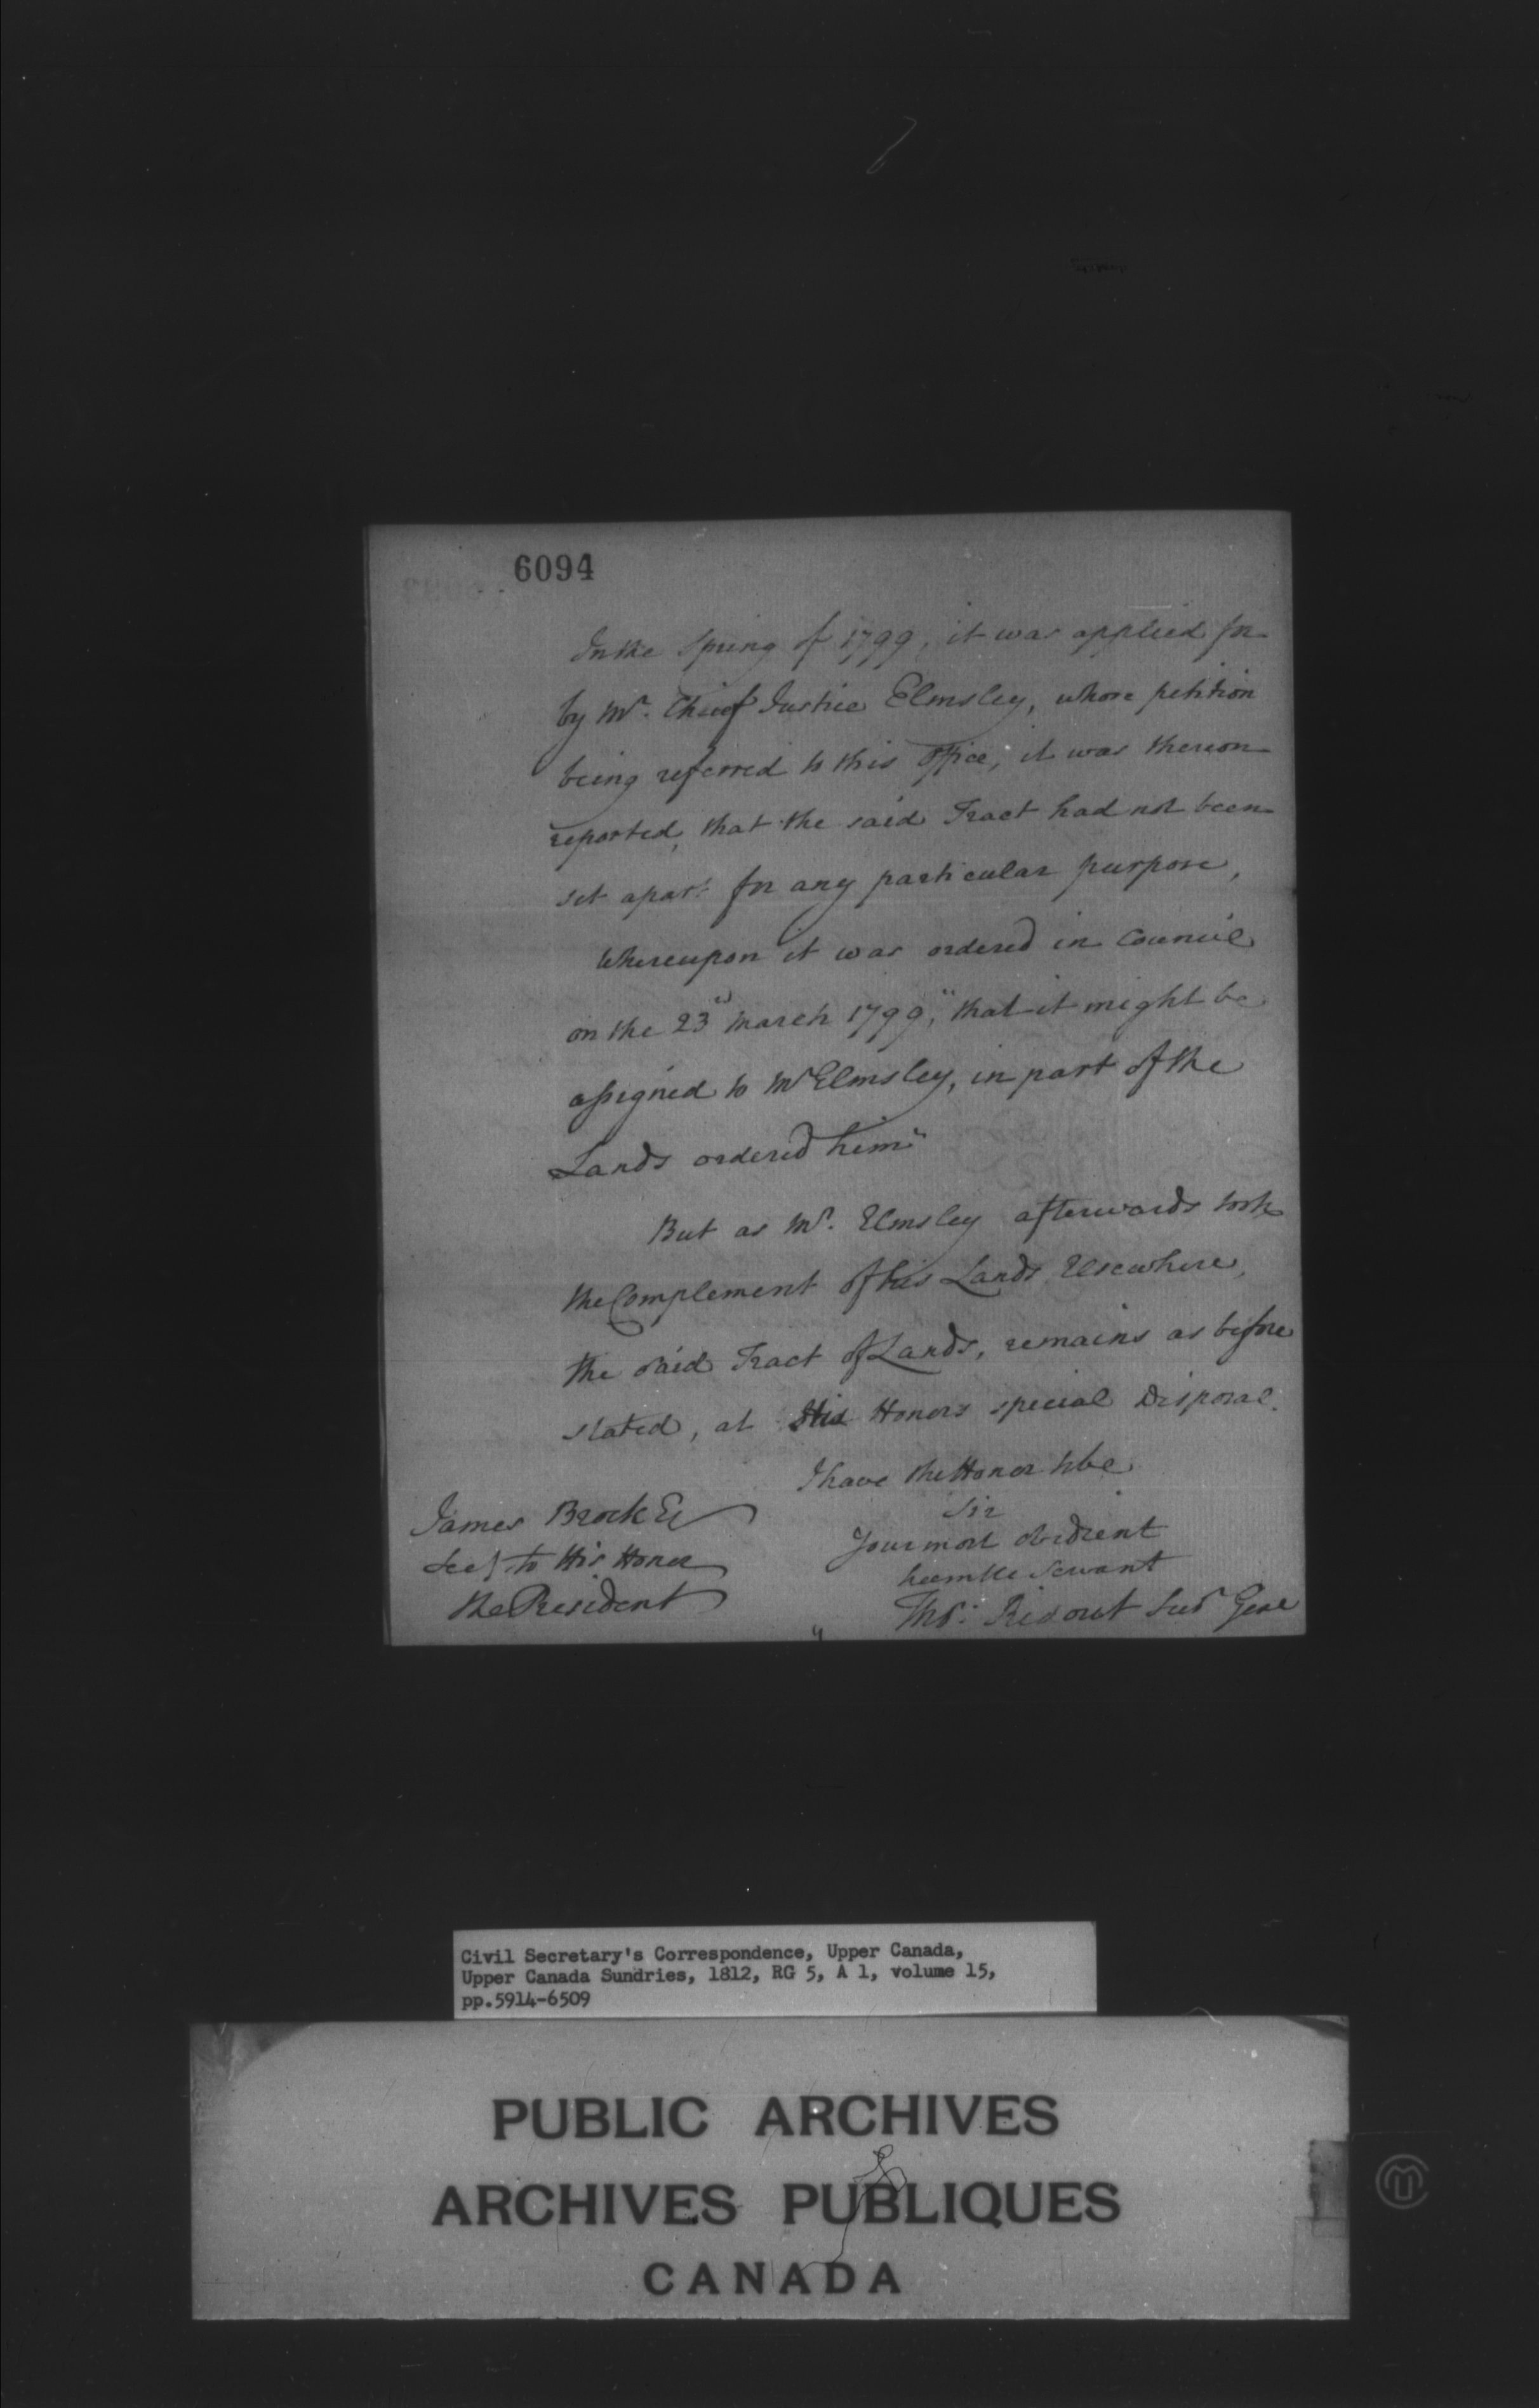 6094
In the Spring of 1799, it was applied for
by Mr. Chief Justice Elmsley, whose petition
being referred to this Office, it was thereon
reported, that the said Tract had not been
set apart for any particular purpose,
Whereupon it was ordered in Council
on the 23d March 1799, "that it might be
assigned to Mr Elmsley, in part of the
Lands ordered him"
But as Mr. Elmsley afterwards took
the Complement of his Lands Elsewhere,
the said Tract of Lands, remains as before
stated, at His Honors special Disposal.
I have the Honor to be
Sir
Your most obedient
humble Servant
Thos. Ridout Survr Genl
James Brock Es
Secy to His Honor
the President
Civil Secretary's Correspondence, Upper Canada,
Upper Canada Sundries, 1812, RG 5, A 1, volume 15,
pp.5914-6509
PUBLIC ARCHIVES
ARCHIVES PUBLIQUES
CANADA